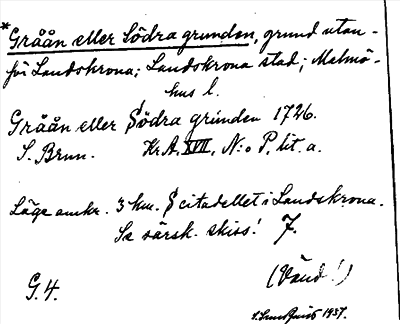 *Gråån eller Södra grunden, grund utan-
för Landskrona; Landskrona stad; Malmö-
hus l.
Gråån eller Södra grunden 1726.
S. Brun. Kr.A. XVII, N:o P. lit. a.
Läge omkr. 3 km. S citadellet i Landskrona.
Se särsk. skiss! 7.
(Vänd!)
G.4.
1937.